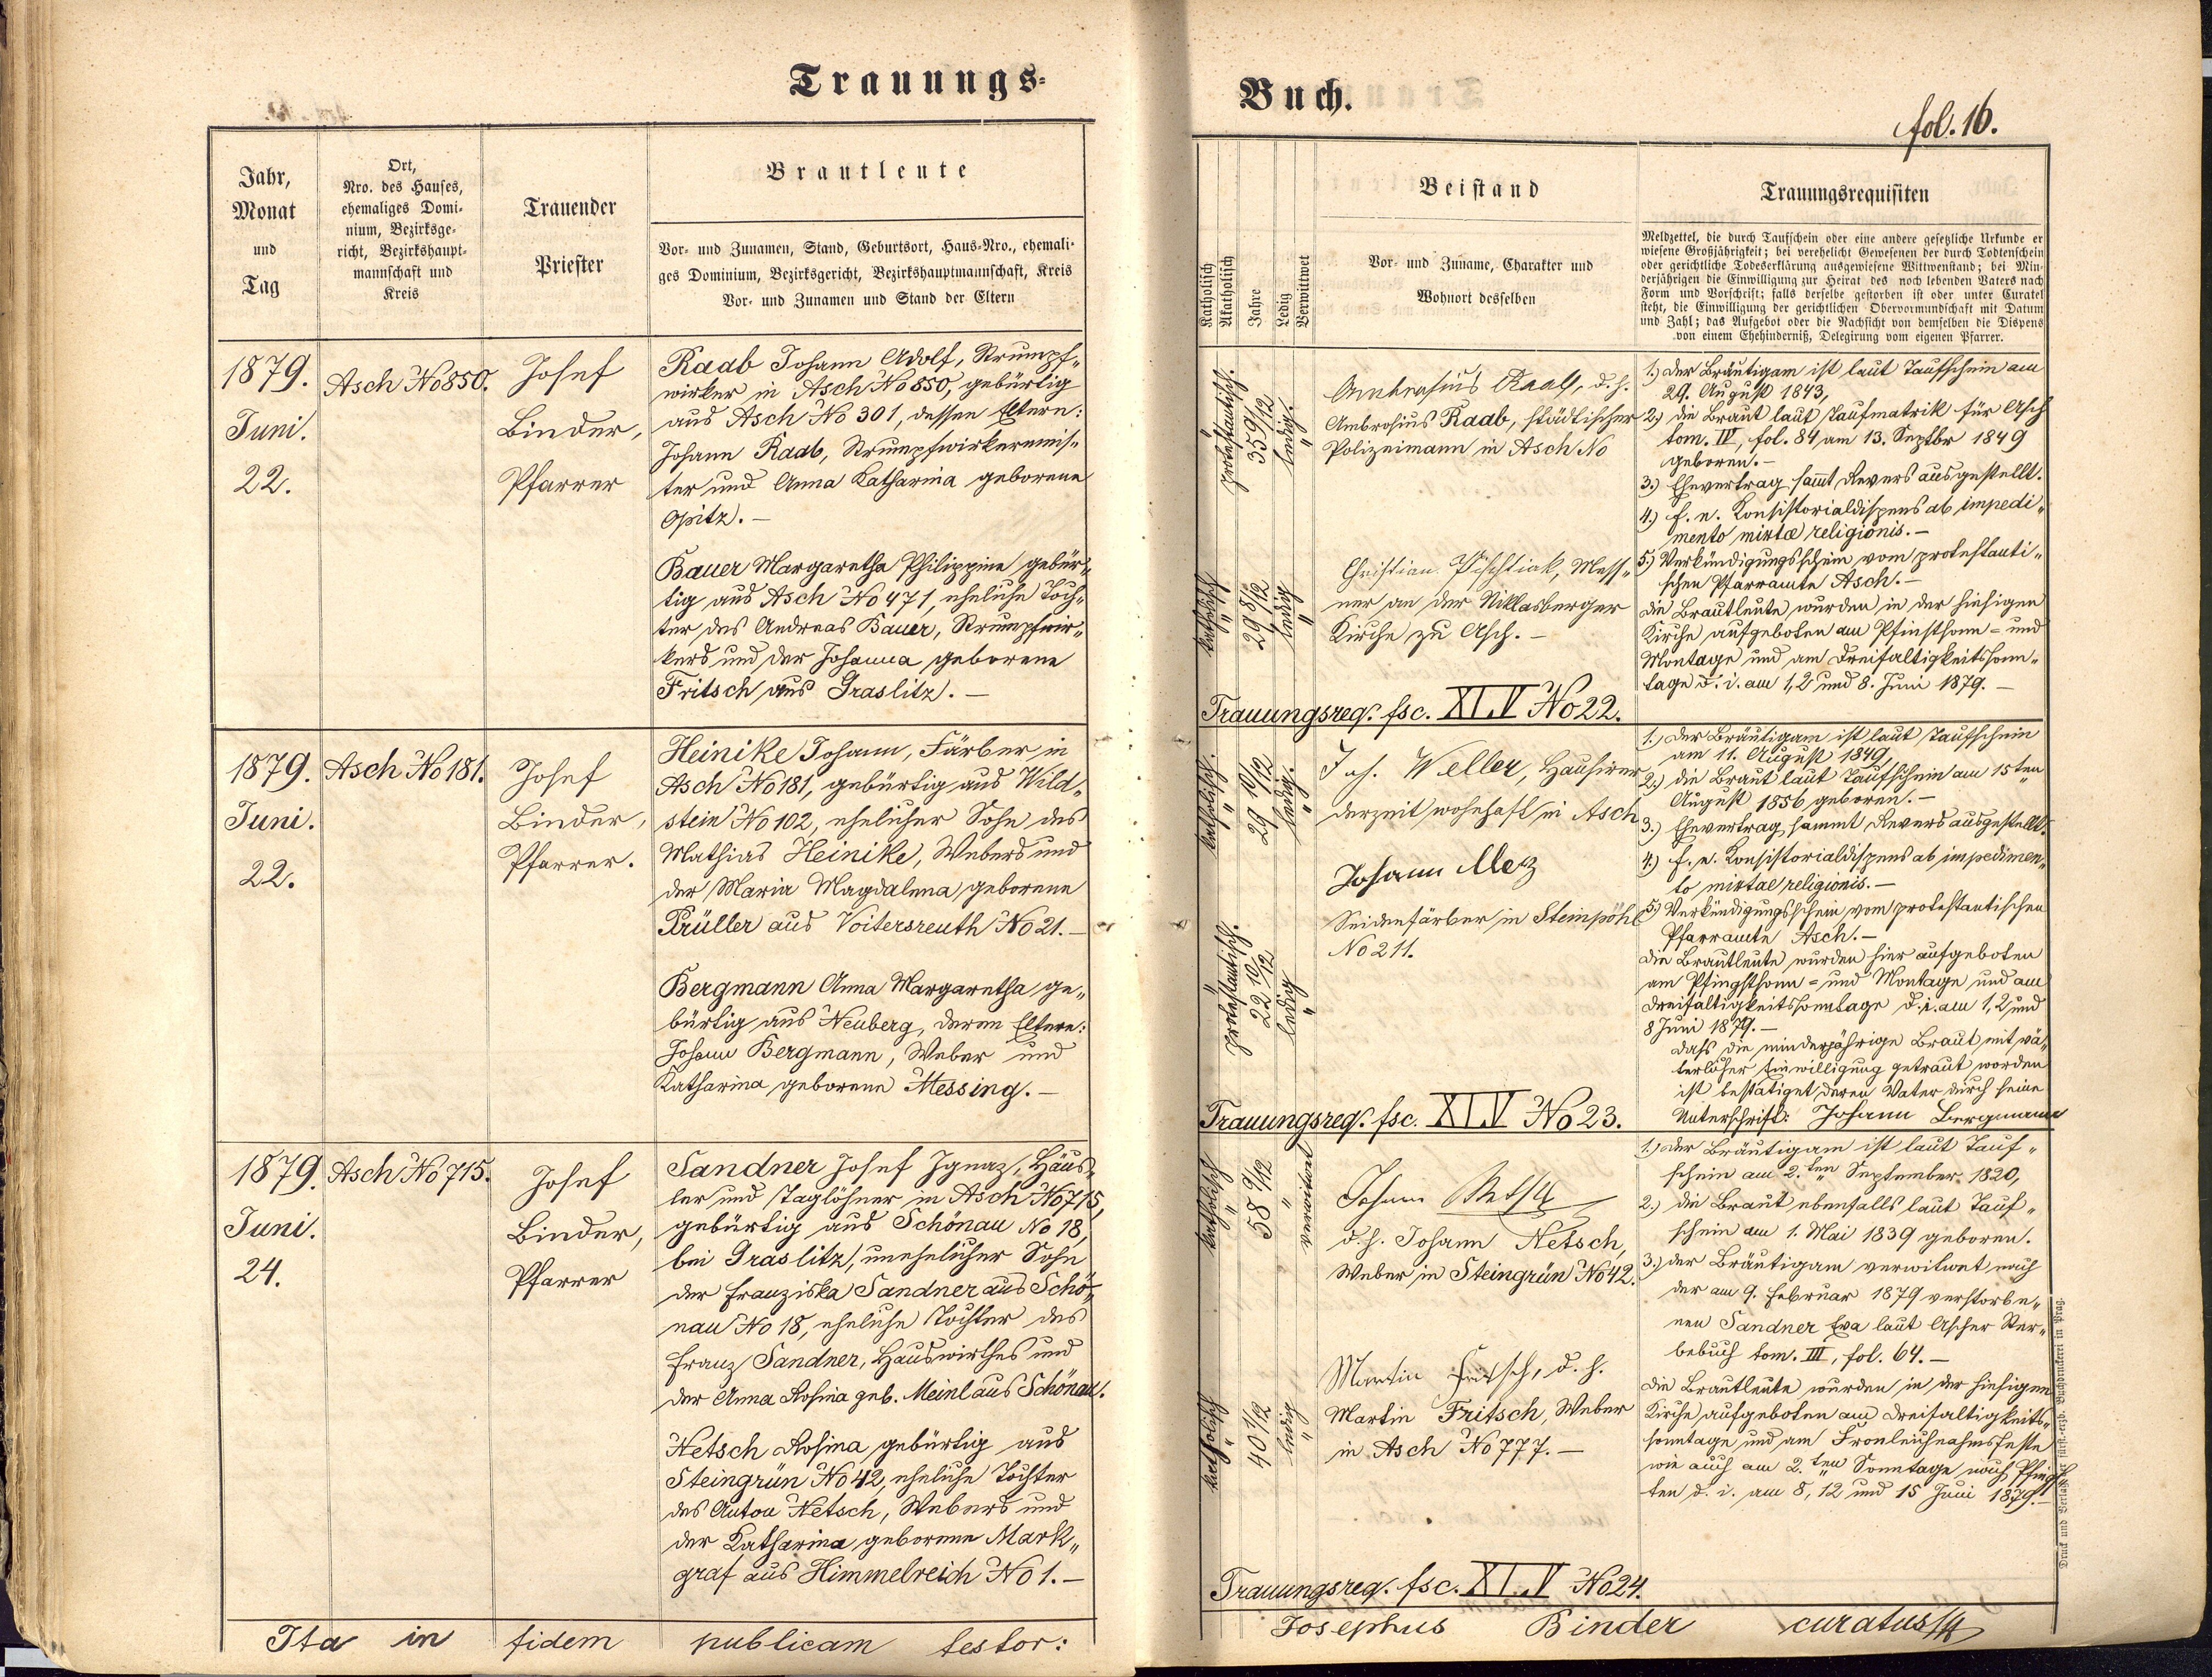 Trauungs-
Jahr,
Monat
und
Tag
Ort,
Nro. des Hauses,
ehemaliges Domi-
nium, Bezirksge-
richt, Bezirkshaupt-
mannschaft und
Kreis
Trauender
Priester
Brautleute
Vor- und Zunamen, Stand, Geburtsort, Haus-Nro., ehemali-
ges Dominium, Bezirksgericht, Bezirkshauptmannschaft, Kreis
Vor- und Zunamen und Stand der Eltern
1879.
Juni.
22.
Asch No 850.
Josef
Binder,
Pfarrer
Raab Johann Adolf, Strumpf-
wirker in Asch No 850, gebürtig
aus Asch No 301, dessen Eltern:
Johann Raab, Strumpfwirkermeis-
ter und Anna Katharina geborene
Opitz. –
Bauer Margaretha Philippine gebür-
tig aus Asch No 471, eheliche Toch-
ter des Andreas Bauer, Strumpfwir-
kers und der Johanna geborene
Fritsch aus Graslitz. –
1879.
Juni.
22.
Asch No 181.
Josef
Binder,
Pfarrer.
Heinike Johann, Färber in
Asch No 181, gebürtig aus Wild-
stein No 102, ehelicher Sohn des
Mathias Heinike, Webers und
der Maria Magdalena geborene
Prüller aus Voitersreuth No 21. –
Bergmann Anna Margaretha ge-
bürtig aus Neuberg, deren Eltern:
Johann Bergmann, Weber und
Katharina geborene Messing. –
1879.
Juni.
24.
Asch No 715.
Josef
Binder,
Pfarrer
Sandner Josef Ignaz, Häus-
ler und Taglöhner in Asch No 715,
gebürtig aus Schönau No 18,
bei Graslitz, unehelicher Sohn
der Franziska Sandner aus Schö-
nau No 18, eheliche Tochter des
Franz Sandner, Hauswirthes und
der Anna Rosina geb. Meinl aus Schönau.
Netsch Rosina gebürtig aus
Steingrün No 42, eheliche Tochter
des Anton Netsch, Webers und
der Katharina geborene Mark-
graf aus Himmelreich No 1. –
Ita in fidem publicam testor:
Buch.
fol. 16.
Katholisch
Akatholisch
Jahre
Ledig
Verwittwet
Beistand
Vor- und Zuname, Charakter und
Wohnort desselben
Trauungsrequisiten
Meldzettel, die durch Taufschein oder eine andere gesetzliche Urkunde er
wiesene Großjährigkeit; bei verehelicht Gewesenen der durch Todtenschein
oder gerichtliche Todeserklärung ausgewiesene Wittwenstand; bei Min-
derjährigen die Einwilligung zur Heirat des noch lebenden Vaters nach
Form und Vorschrift; falls derselbe gestorben ist oder unter Curatel
steht, die Einwilligung der gerichtlichen Obervormundschaft mit Datum
und Zahl; das Aufgebot oder die Nachsicht von demselben die Dispens
von einem Ehehinderniß, Delegirung vom eigenen Pfarrer.
protestantisch.
35 9/12
ledig.
Ambrosius Raab, d. h.
Ambrosius Raab, städtischer
Polizeimann in Asch No
katholisch
29 8/12
ledig
Christian Pischtiak, Mess-
ner an der Niklasberger
Kirche zu Asch. –
1.) Der Bräutigam ist laut Taufschein am
29. August 1843,
2.) die Braut laut Taufmatrik für Asch
tom. IV, fol. 84 am 13. Septbr 1849
geboren. –
3.) Ehevertrag sammt Revers ausgestellt.
4.) f. e. Konsistorialdispens ab impedi-
mento mixtæ religionis. –
5.) Verkündigungsschein vom protestanti-
schen Pfarramte Asch. –
Die Brautleute wurden in der hiesigen
Kirche aufgeboten am Pfinstsonn- und
Montage und am Dreifaltigkeitssonn-
tage d. i. am 1, 2 und 8. Juni 1879. –
Trauungsreq. fsc. XLV No 22.
katholisch.
29 10/12
ledig.
Joh. Weller, Hausirer
derzeit wohnhaft in Asch
protestantisch.
22 10/12
ledig
Johann Merz
Seidenfärber in Steinpöhl
No 211.
1.) Der Bräutigam ist laut Taufschein
am 11. August 1849,
2.) die Braut laut Taufschein am 15ten
August 1856 geboren. –
3.) Ehevertrag sammt Revers ausgestellt.
4.) f. e. Konsistorialdispens ab impedimen-
to mixtae religionis. –
5.) Verkündigungsschein vom protestantischen
Pfarramte Asch. –
Die Brautleute wurden hier aufgeboten
am Pfingstsonn- und Montage und am
Dreifaltigkeitssonntage d. i. am 1, 2 und
8 Juni 1879. –
Dass die minderjährige Braut mit vä-
terlicher Einwilligung getraut worden
ist bestätiget deren Vater durch seine
Unterschrift: Johann Bergmann
Trauungsreq. fsc. XLV No 23.
katholisch
58 9/12
verwitwet
Johann Netsch
d. h. Johann Netsch,
Weber in Steingrün No 42.
katholisch
40 1/12
ledig
Martin Fritsch, d. h.
Martin Fritsch, Weber
in Asch No 777. –
1.) Der Bräutigam ist laut Tauf-
schein am 2.ten September 1820,
2.) die Braut ebenfalls laut Tauf-
schein am 1. Mai 1839 geboren.
3.) der Bräutigam verwitwet nach
der am 9. Februar 1879 verstorbe-
nen Sandner Eva laut Ascher Ster-
bebuch tom. III, fol. 64. –
Die Brautleute wurden in der hiesigen
Kirche aufgeboten am Dreifaltigkeits-
sonntage und am Fronleichnahmsfeste
wie auch am 2.ten Sonntage nach Pfings-
ten d. i. am 8, 12 und 15 Juni 1879. –
Trauungsreq. fsc. XLV No 24.
Josephus Binder curatus
Druck und Verlag der fürst-erzb. Buchdruckerei in Prag.